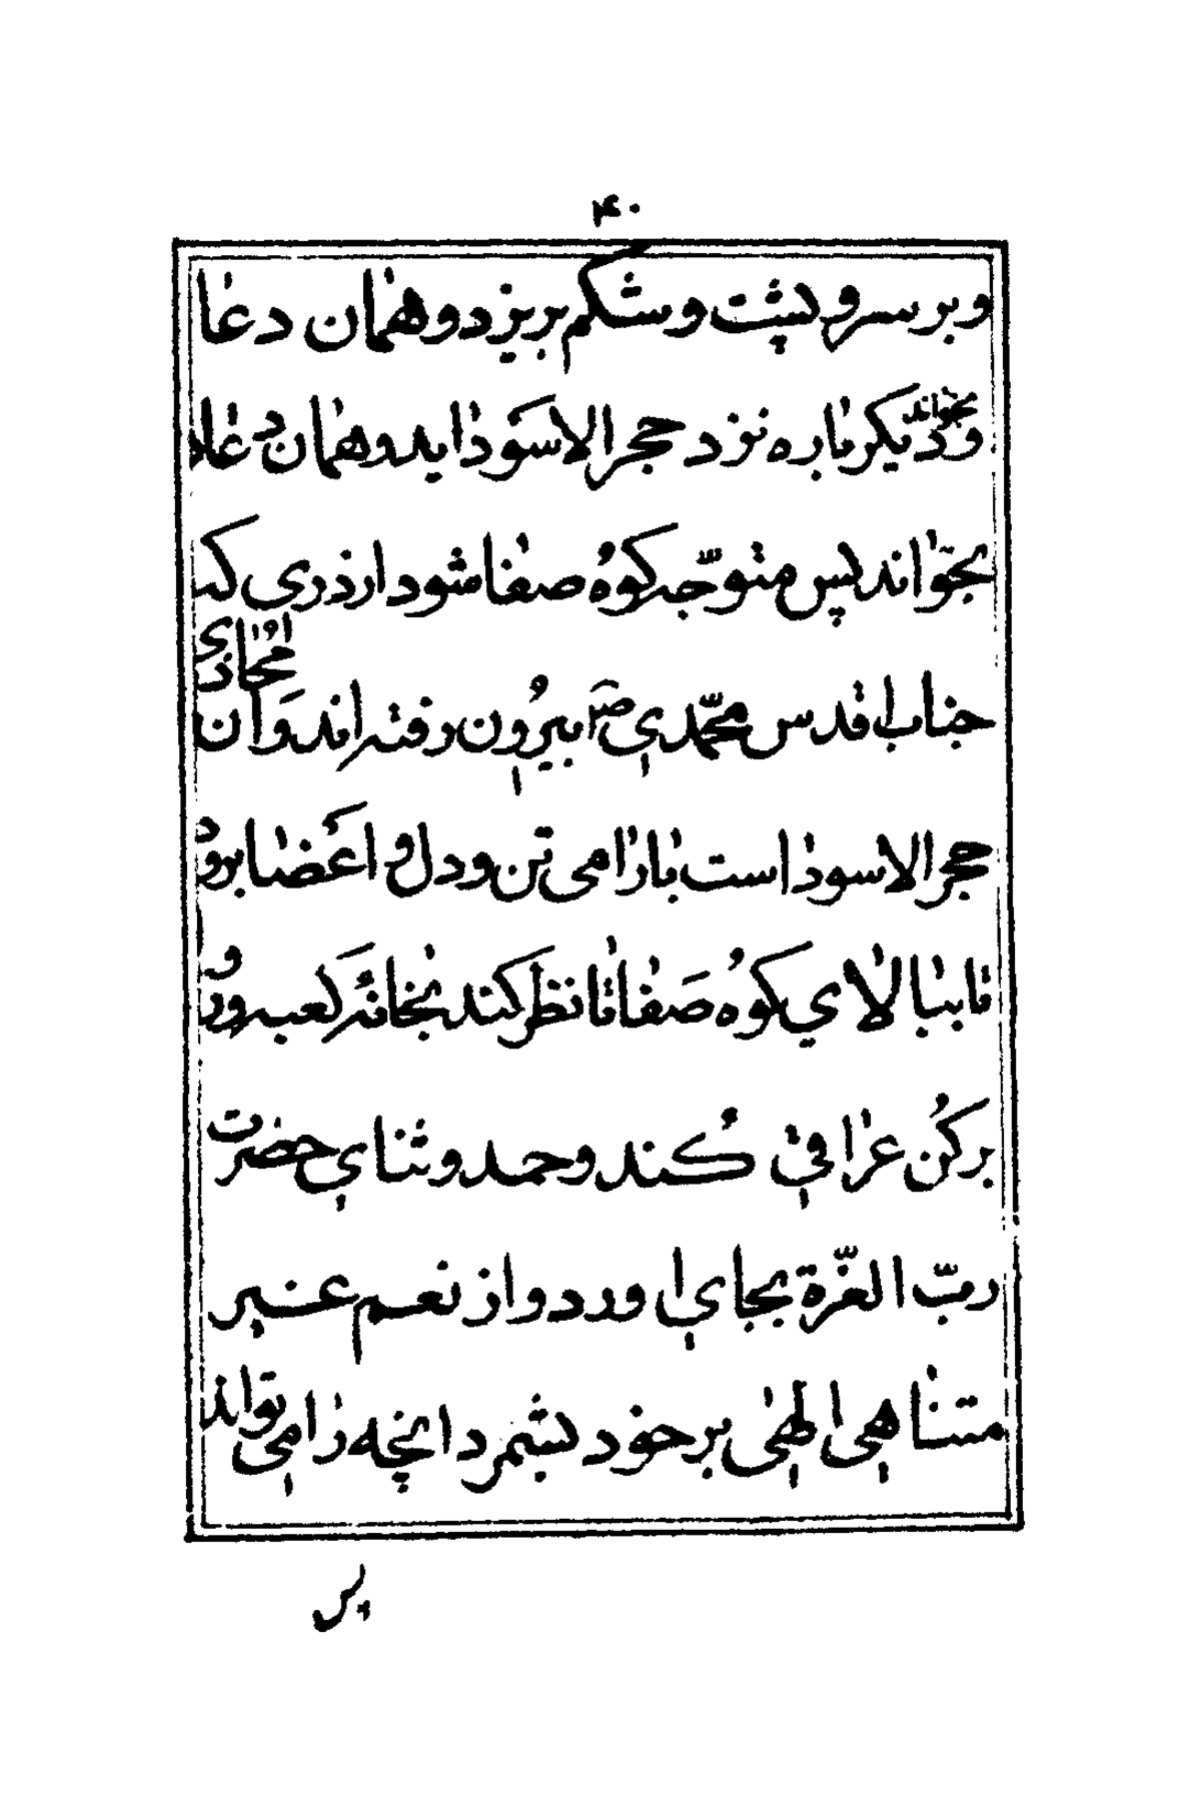 ۴۰
وبر سر و پشت و شکم بریزد و همان دعا
بخواند
و دیگر باره نزد حجر الاسود اید و همان دعا
بخواند پس متوجه کوه صفا شود از دری که
جناب اقدس محمدی ص بیرون رفته اند و ان محاذی
حجر الاسود است بارامی تن و دل و اعضا برود
تا ببالای کوه صفا تا نظر کند بخانه کعبه و رو
برکن عراقی کند و حمد و ثنای حضرت
ربّ العزّة بجای اورد و از نعم غیر
متناهی الهی بر خود بشمرد انچه را می تواند
پس